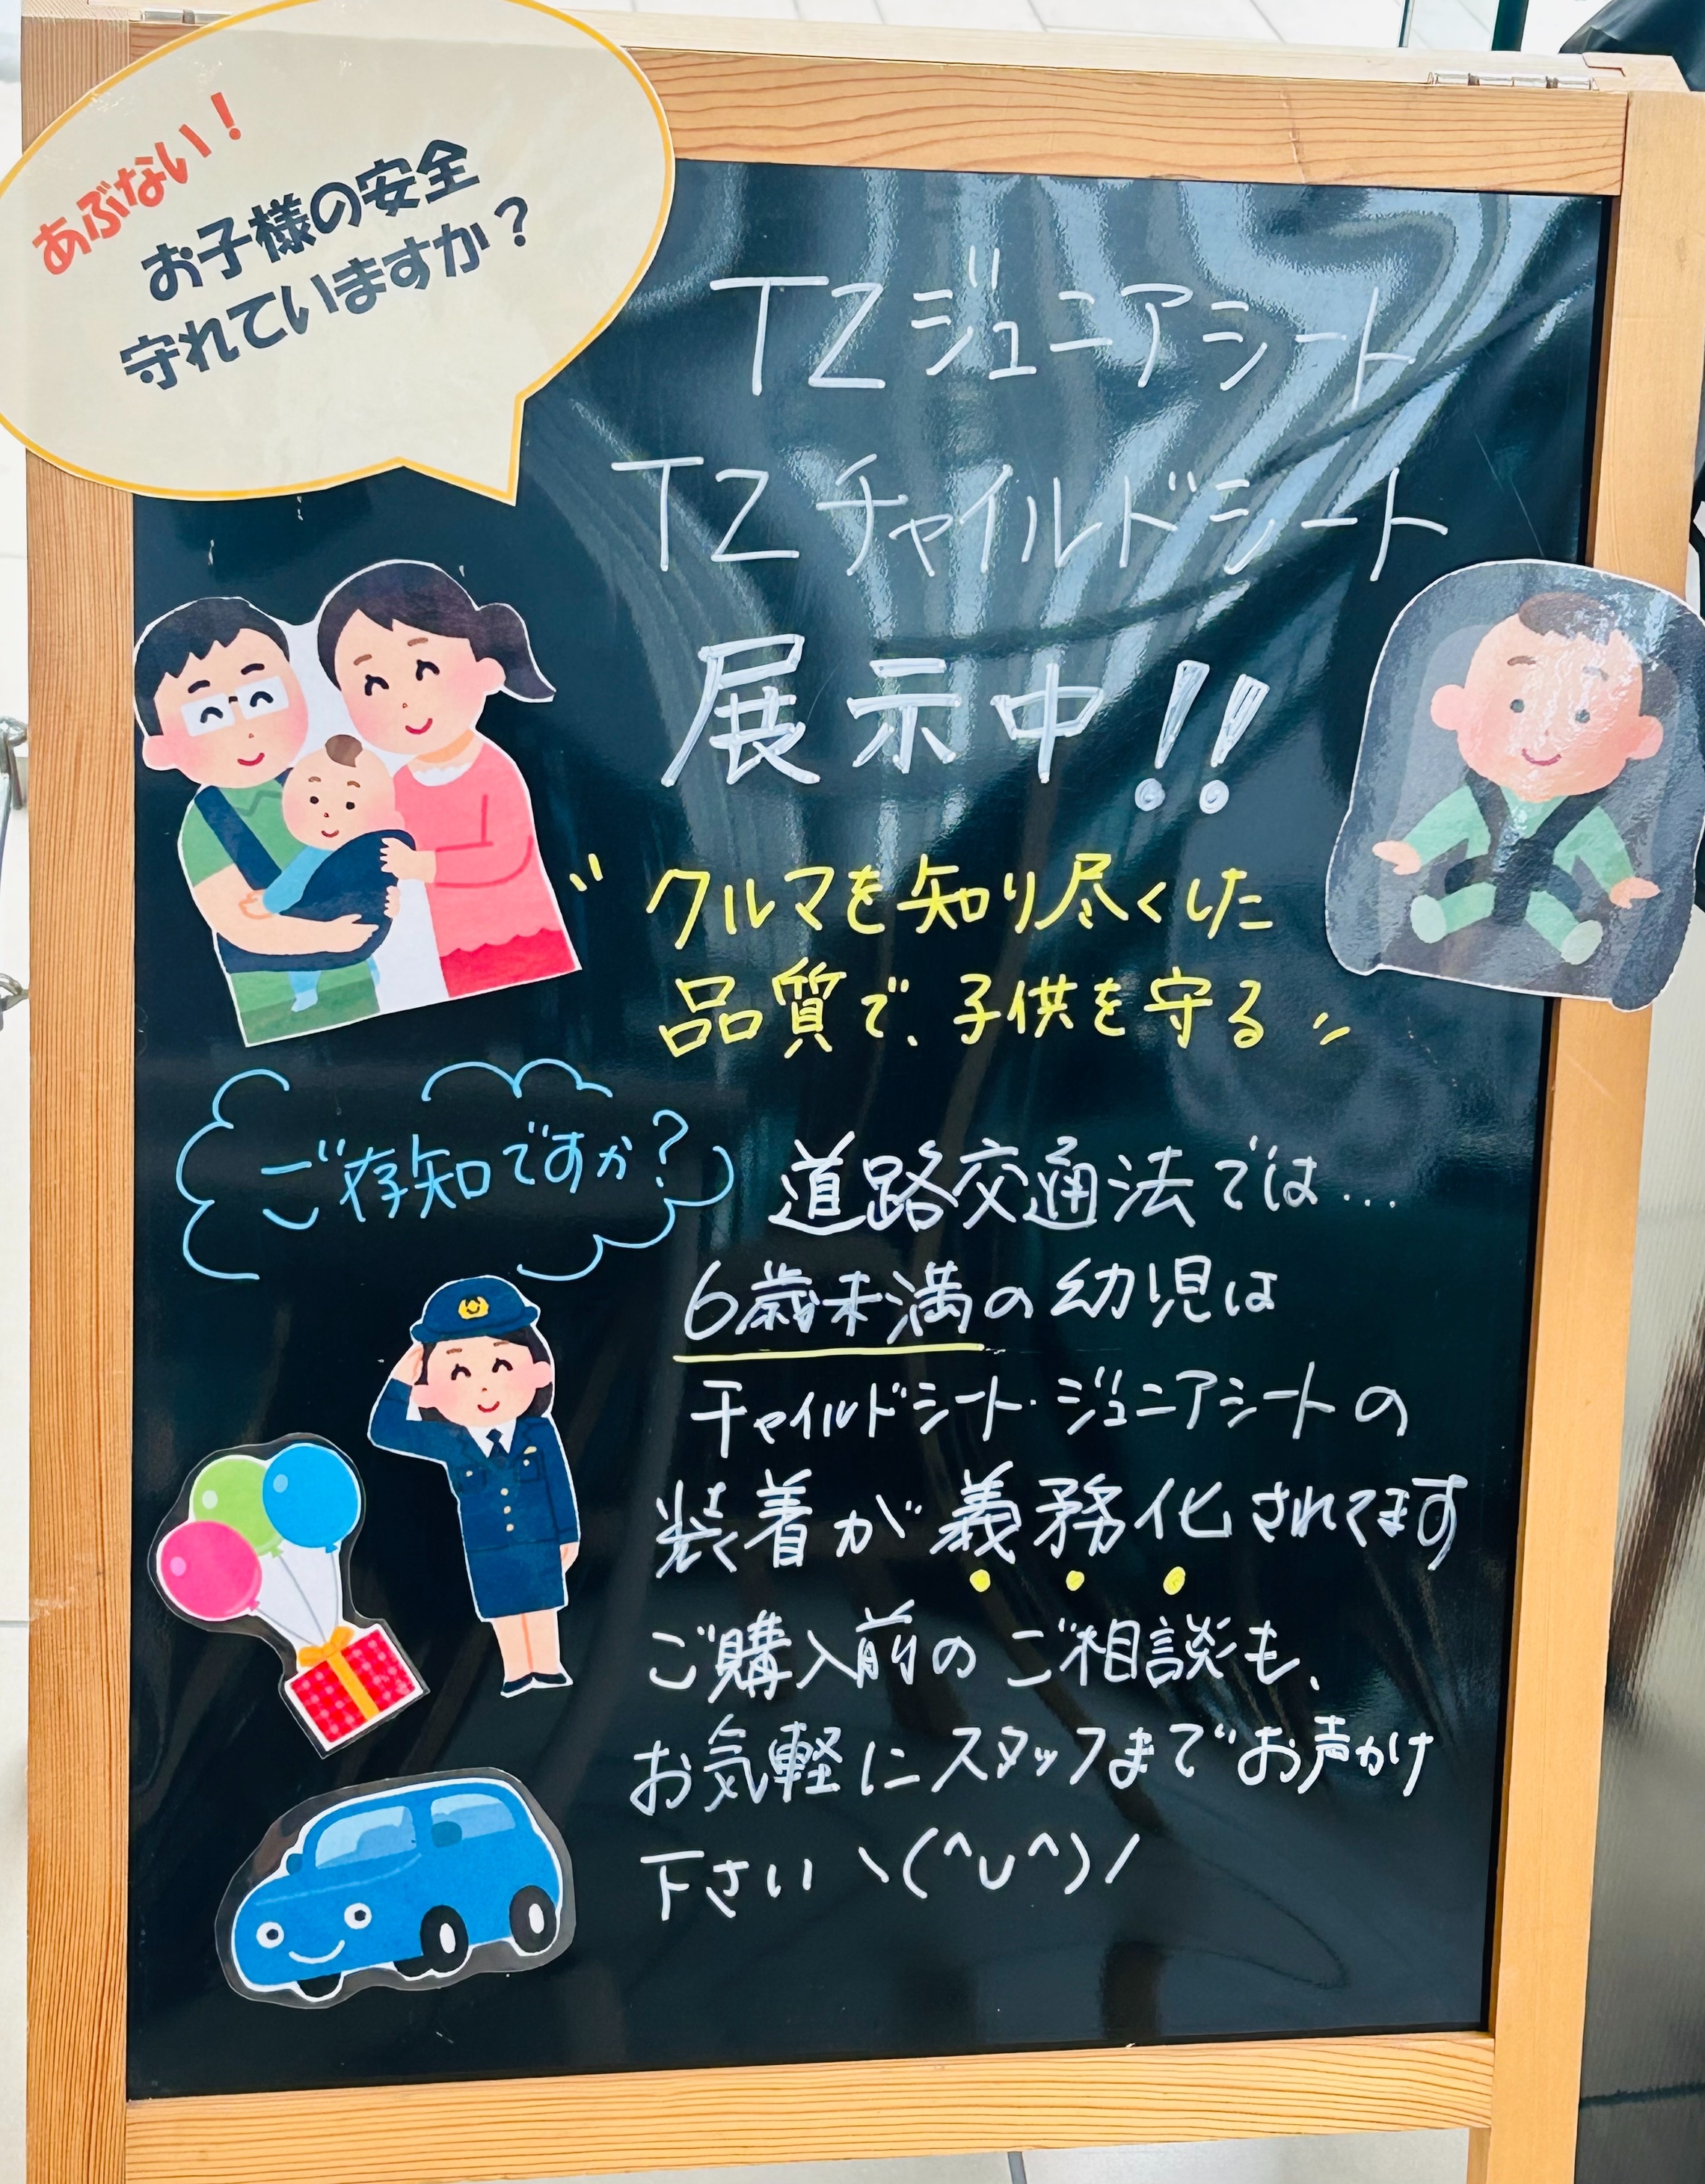 あぶない！
お子様の安全
守れていますか？
TZジュニアシート
TZチャイルドシート
展示中!!
〝クルマを知り尽くした
品質で、子供を守る〟
ご存知ですか?
道路交通法では…
6歳未満の幼児は
チャイルドシート・ジュニアシートの
装着が義務化されてます
ご購入前のご相談も、
お気軽にスタッフまでお声かけ
下さい＼(^∪^)／